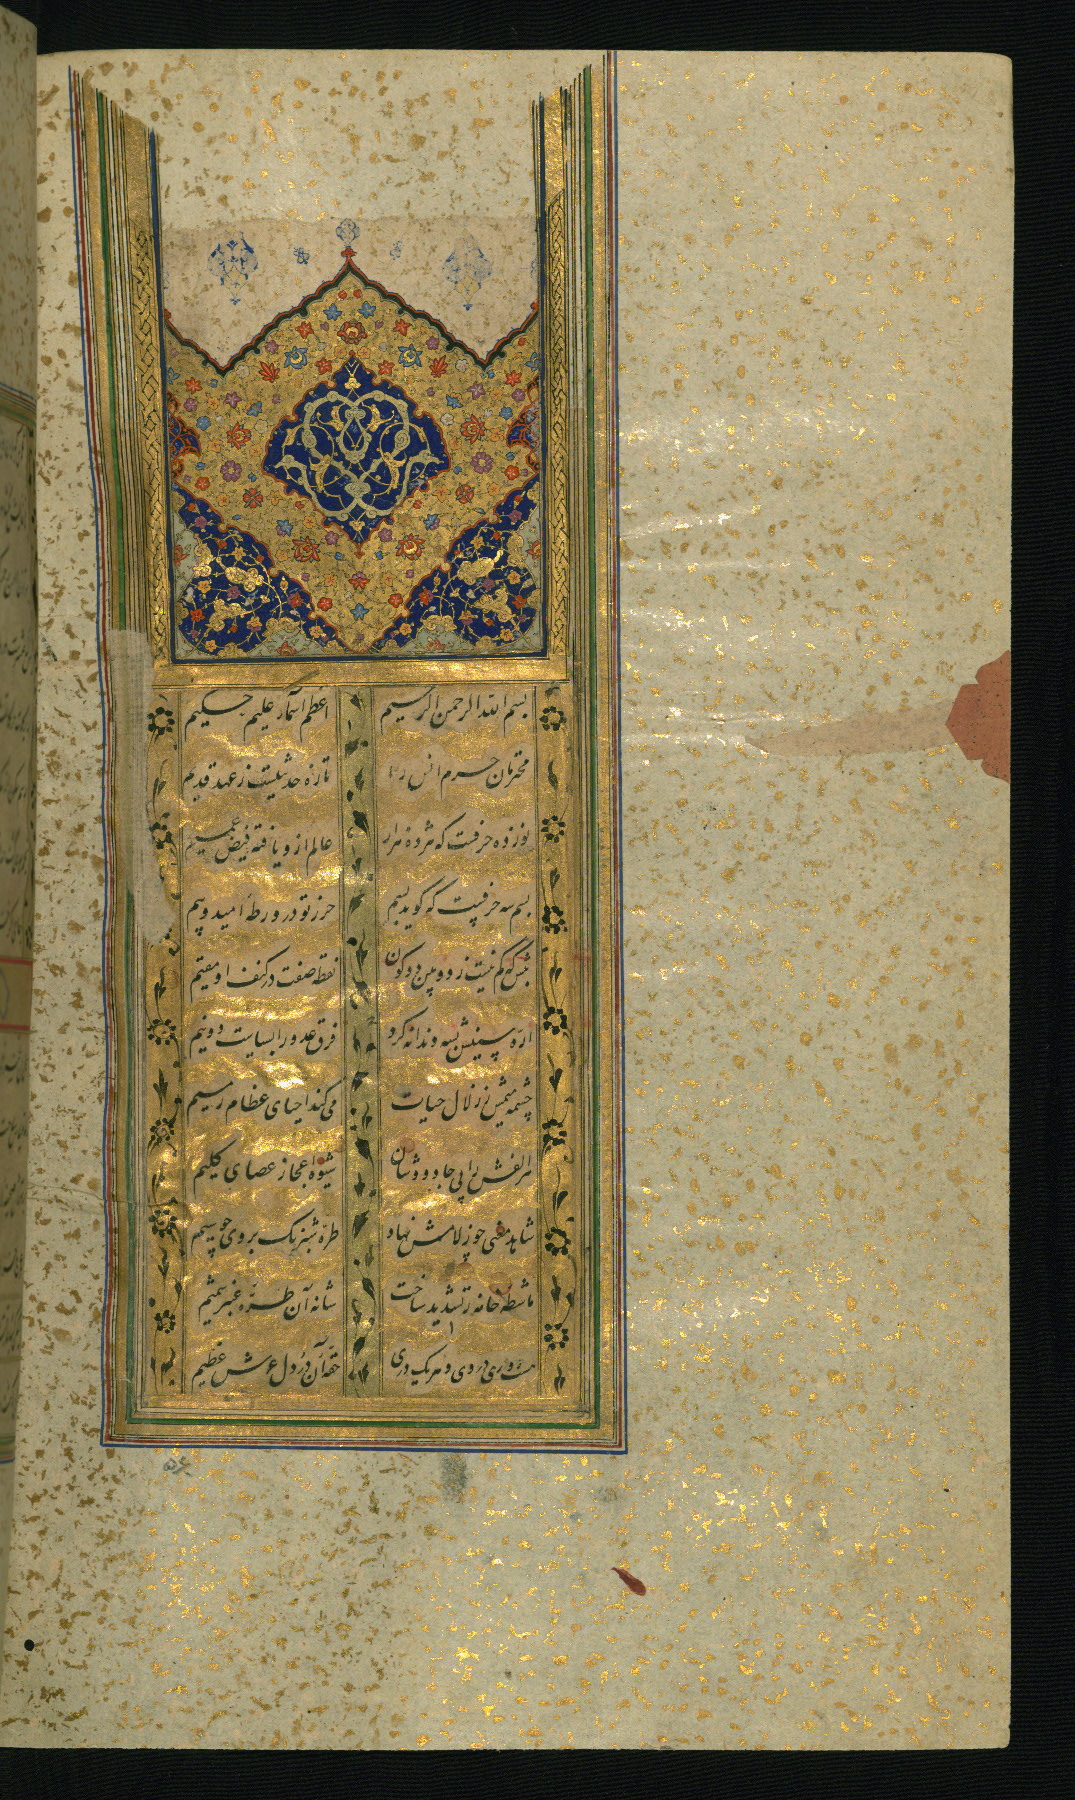 بسم الله الرحمن الرحیم اعظم اسماء علیم حکیم
محرمان حرم انس را تازه حدیثیست ز عهد قدیم
نوزده حرفست که هژده هزار عالم ازو یافته فیض عمیم
بسم سه حرفیست که گوید بسم حرز تو در ورطهٔ امید و بیم
نیست ز دو بین دو کون نقطه صفت در کنف او مقیم
ارهٔ سینش بسه دندانه کرد فرق عدو را بسیاست دو نیم
چشمهٔ میمش ز زلال حیات می کند احیای عظام رمیم
مر الفش را پی جادووشان شیوهٔ اعجاز عصای کلیم
شاهد معنی چو ز لامش نهاد طرهٔ شبرنگ بروی چو سیم
ماشطهٔ خانه ز تشدید ساخت شانه آن طرهٔ عنبر شمیم
دری و هر یک دری حقهٔ آن در دل عرش عظیم